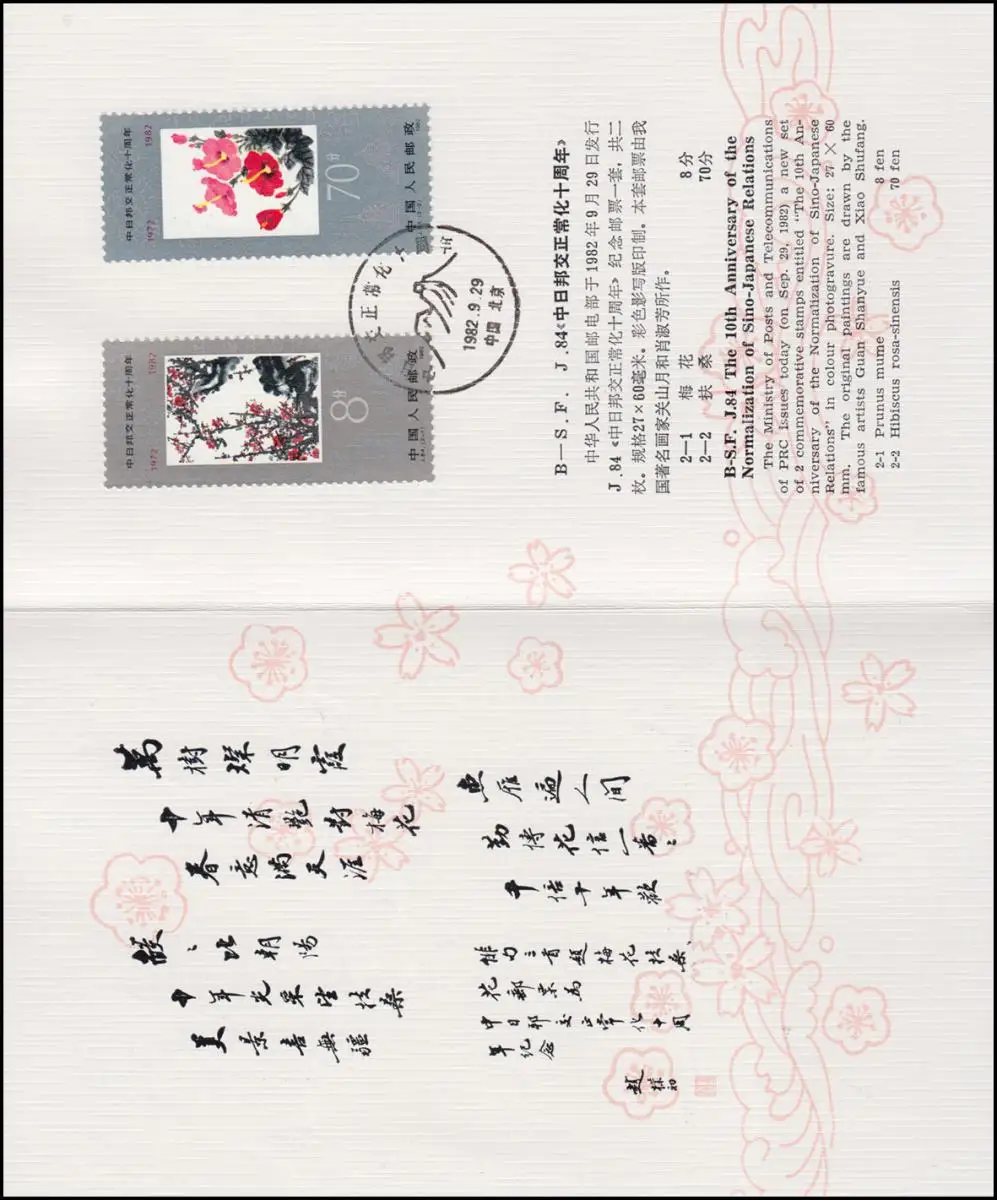 中日邦交正常化十周年
1972 1982
8分
中国人民邮政
中日邦交正常化十周年
1972 1982
70分
中国人民邮政
1982.9.29
中国 北京
B—S.F. J.84《中日邦交正常化十周年》
中华人民共和国邮电部于1982年9月29日发行
J.84《中日邦交正常化十周年》纪念邮票一套，共二
枚。规格27×60毫米，彩色影写版印制。本套邮票由我
国著名画家关山月和肖淑芳所作。
2—1 梅 花 8分
2—2 扶 桑 70分
B-S.F. J.84 The 10th Anniversary of the
Normalization of Sino-Japanese Relations
The Ministry of Posts and Telecommunications
of PRC Issues today (on Sep. 29, 1982) a new set
of 2 commemorative stamps entitled "The 10th An-
niversary of the Normalization of Sino-Japanese
Relations" in colour photogravure. Size: 27 × 60
mm. The original paintings are drawn by the
famous artists Guan Shanyue and Xiao Shufang.
2-1 Prunus mume 8 fen
2-2 Hibiscus rosa-sinensis 70 fen
萬樹璨明霞
十年清艷對梅花
春意滿天涯
比朝陽
十年光采望扶桑
美景喜無疆
魚雁遍人间
勤傳花信一番々
千倍十年歡
俳句三首題梅花扶桑
花郵票為
中日邦交正常化十周
年纪念
趙樸初